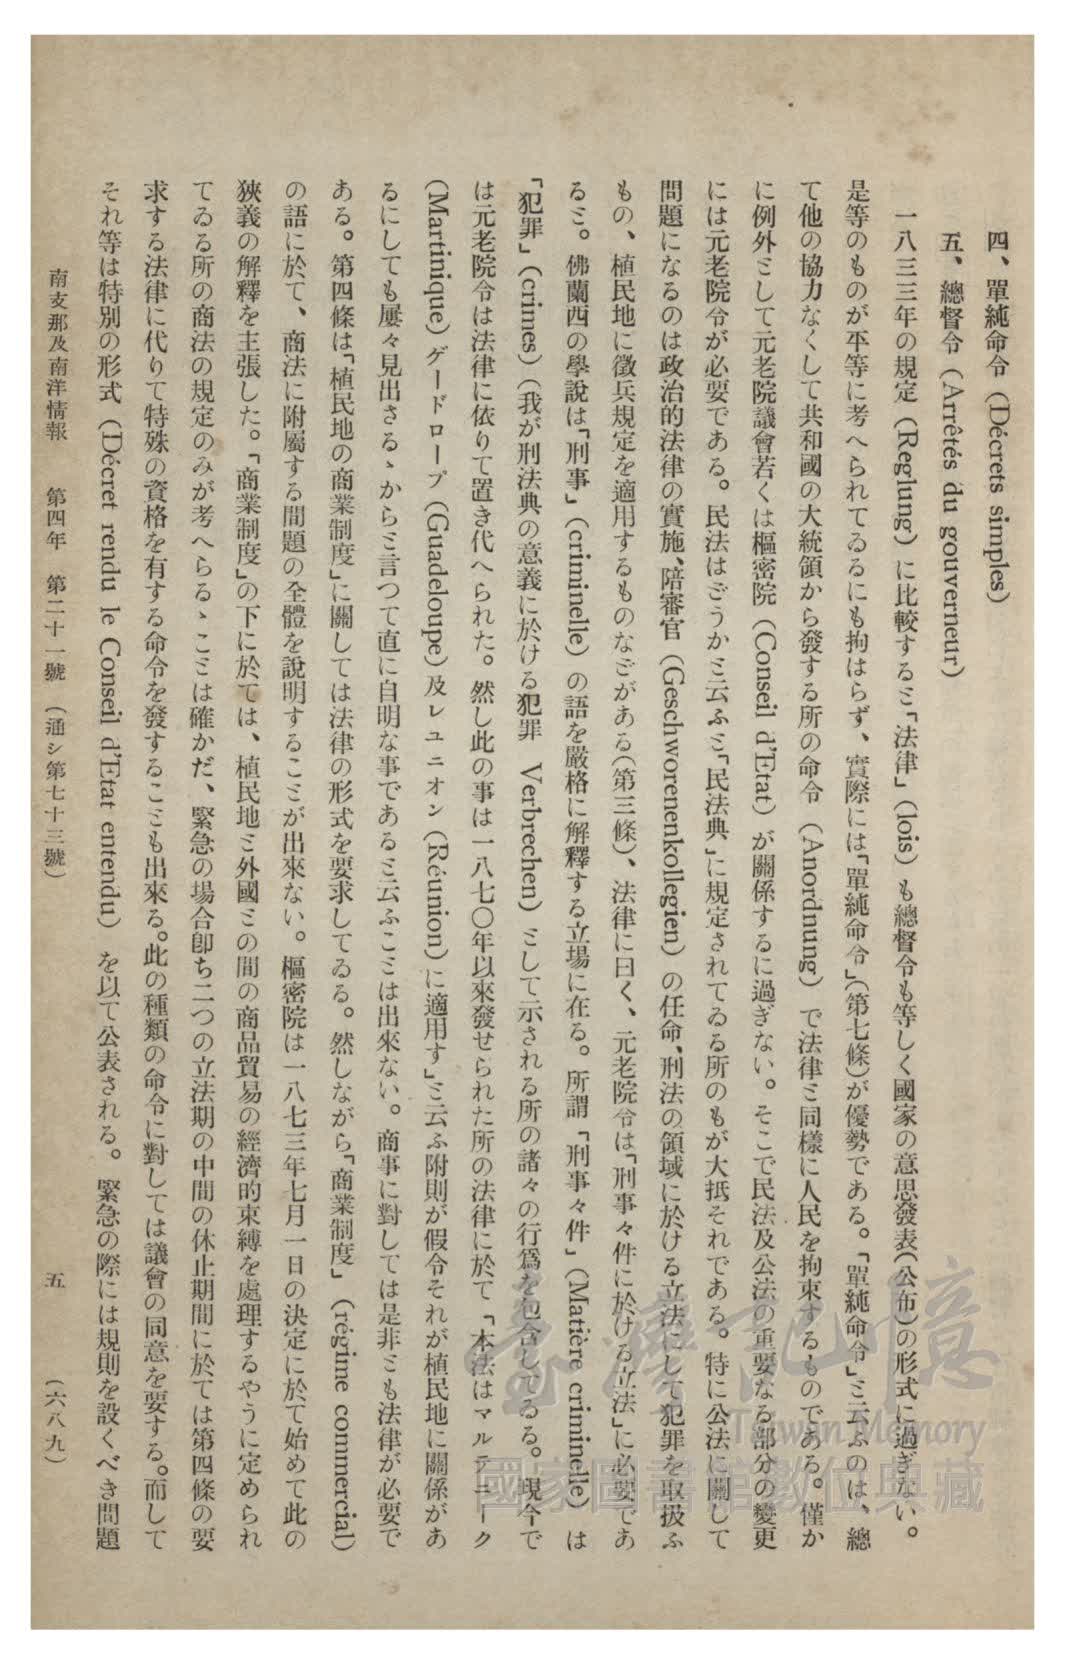 四、單純命令 (Décrets simples)
五、總督令 (Arrêtés du gouverneur)
一八三三年の規定 (Reglung) に比較するミ「法律」(lois) も總督令も等しく國家の意思發表(公布)の形式に過ぎない。
是等のものが平等に考へられてゐるにも拘はらず、實際には「單純命令」(第七條)が優勢である。「單純命令」ミ云ふのは、總
て他の協力なくして共和國の大統領から發する所の命令 (Anordnung) で法律ミ同樣に人民を拘束するものである。僅か
に例外ミして元老院議會若くは樞密院 (Conseil d'Etat) が關係するに過ぎない。そこで民法及公法の重要なる部分の變更
には元老院令が必要である。民法はごうかミ云ふミ「民法典」に規定されてゐる所のもが大抵それである。特に公法に關して
問題になるのは政治的法律の實施、陪審官 (Geschworenenkollegien) の任命、刑法の領域に於ける立法にして犯罪を取扱ふ
もの、植民地に徵兵規定を適用するものなごがある(第三條)、法律に曰く、元老院令は「刑事々件に於ける立法」に必要であ
るミ。佛蘭西の學說は「刑事」(criminelle) の語を嚴格に解釋する立場に在る。所謂「刑事々件」(Matière criminelle) は
「犯罪」(crimes) (我が刑法典の意義に於ける犯罪 Verbrechen) ミして示される所の諸々の行爲を包含してゐる。現今で
は元老院令は法律に依りて置き代へられた。然し此の事は一八七〇年以來發せられた所の法律に於て「本法はマルテニーク
(Martinique) ゲードロープ (Guadeloupe) 及レユニオン (Réunion) に適用す」ミ云ふ附則が假令それが植民地に關係があ
るにしても屢々見出さるゝからミ言つて直に自明な事であるミ云ふこミは出來ない。商事に對しては是非ミも法律が必要で
ある。第四條は「植民地の商業制度」に關しては法律の形式を要求してゐる。然しながら「商業制度」(régime commercial)
の語に於て、商法に附屬する間題の全體を說明するこミが出來ない。樞密院は一八七三年七月一日の決定に於て始めて此の
狹義の解釋を主張した。「商業制度」の下に於ては、植民地ミ外國ミの間の商品貿易の經濟的束縛を處理するやうに定められ
てゐる所の商法の規定のみが考へらるゝこミは確かだ、緊急の場合卽ち二つの立法期の中間の休止期間に於ては第四條の要
求する法律に代りて特殊の資格を有する命令を發するこミも出來る。此の種類の命令に對しては議會の同意を要する。而して
それ等は特別の形式 (Décret rendu le Conseil d'Etat entendu) を以て公表される。緊急の際には規則を設くべき問題
南支那及南洋情報 第四年 第二十一號 (通シ第七十三號) 五 (六八九)
臺灣記憶
Taiwan Memory
國家圖書館數位典藏